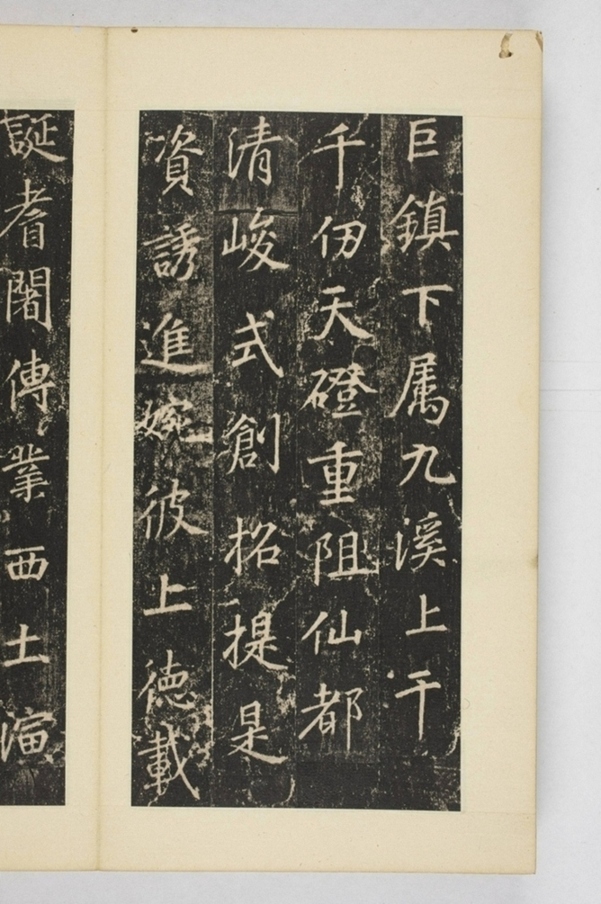 巨鎮下属九溪上干
千仞天磴重阻仙都
清峻式創招提是
資誘進婉彼上德載
誕耆闍傳業西土㴞